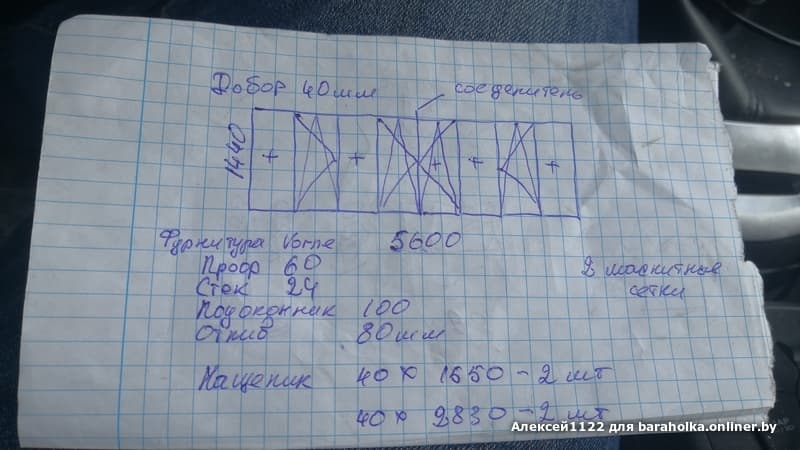 Добор 40мм
соеденитель
1440
+ + + + +
Фурнитура Vorne
5600
Проф 60
Стек 24
Подоконник 100
Отлив 80мм
2 москитные
сетки
Нащелник 40 х 1650 - 2 шт
40 х 2830 - 2 шт
Алексей1122 для baraholka.onliner.by